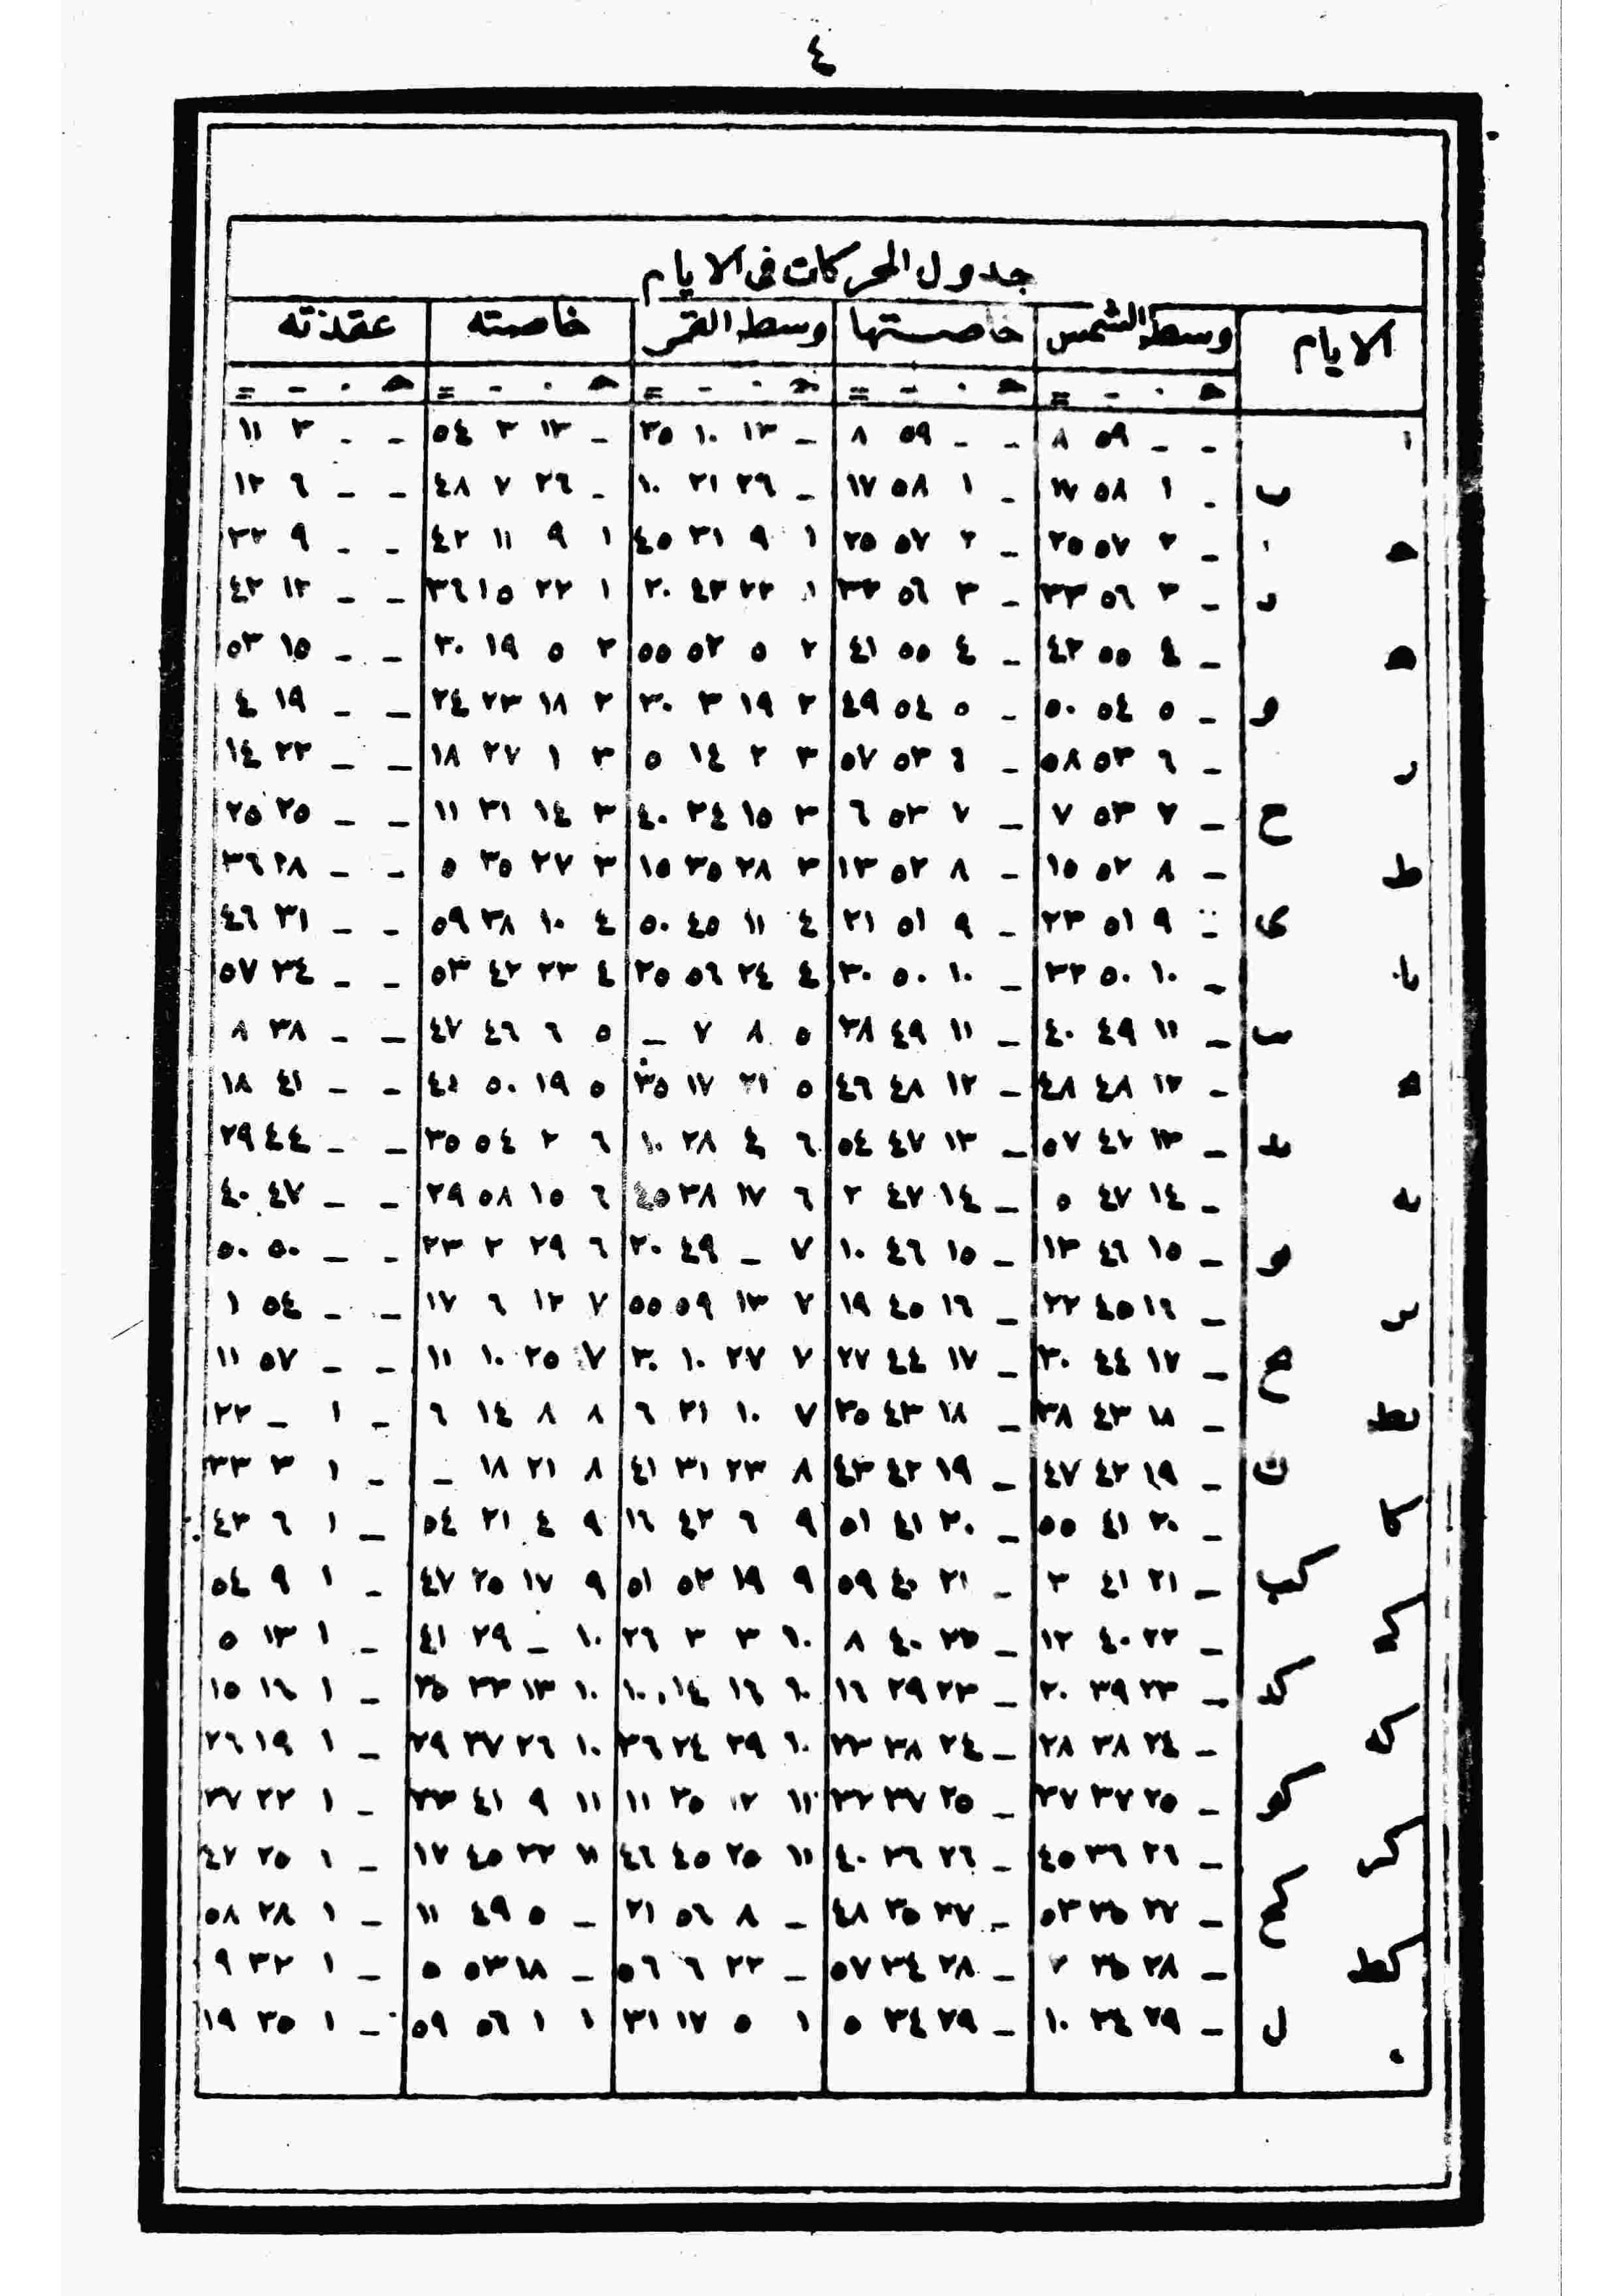 ٤
جدول الحركات فى الايام
الايام وسط الشمس خاصتها وسط القمر خاصته عقدته
ا - - ٥٩ ٨ - - ٥٩ ٨ - ١٣ ١٠ ٣٥ - ١٣ ٣ ٥٤ - - ٣ ١١
ب - ١ ٥٨ ١٧ - ١ ٥٨ ١٧ - ٢٦ ٢١ ١٠ - ٢٦ ٧ ٤٨ - - ٦ ١٢
ح - ٢ ٥٧ ٢٥ - ٢ ٥٧ ٢٥ ١ ٩ ٣١ ٤٥ ١ ٩ ١١ ٤٢ - - ٩ ٣٢
د - ٣ ٥٦ ٣٣ - ٣ ٥٦ ٣٣ ١ ٢٢ ٤٢ ٢٠ ١ ٢٢ ١٥ ٣٦ - - ١٢ ٤٢
ه - ٤ ٥٥ ٤٢ - ٤ ٥٥ ٤١ ٢ ٥ ٥٢ ٥٥ ٢ ٥ ١٩ ٣٠ - - ١٥ ٥٣
و - ٥ ٥٤ ٥٠ - ٥ ٥٤ ٤٩ ٢ ١٩ ٣ ٣٠ ٢ ١٨ ٢٣ ٢٤ - - ١٩ ٤
ر - ٦ ٥٣ ٥٨ - ٦ ٥٣ ٥٧ ٣ ٢ ١٤ ٥ ٣ ١ ٢٧ ١٨ - - ٢٢ ١٤
ح - ٧ ٥٣ ٧ - ٧ ٥٣ ٦ ٣ ١٥ ٢٤ ٤٠ ٣ ١٤ ٣١ ١١ - - ٢٥ ٢٥
ط - ٨ ٥٢ ١٥ - ٨ ٥٢ ١٣ ٣ ٢٨ ٣٥ ١٥ ٣ ٢٧ ٣٥ ٥ - - ٢٨ ٣٦
ى - ٩ ٥١ ٢٣ - ٩ ٥١ ٢١ ٤ ١١ ٤٥ ٥٠ ٤ ١٠ ٣٨ ٥٩ - - ٣١ ٤٦
يا - ١٠ ٥٠ ٣٢ - ١٠ ٥٠ ٣٠ ٤ ٢٤ ٥٦ ٢٥ ٤ ٢٣ ٤٢ ٥٣ - - ٣٤ ٥٧
يب - ١١ ٤٩ ٤٠ - ١١ ٤٩ ٣٨ ٥ ٨ ٧ - ٥ ٦ ٤٦ ٤٧ - - ٣٨ ٨
يح - ١٢ ٤٨ ٤٨ - ١٢ ٤٨ ٤٦ ٥ ٢١ ١٧ ٣٥ ٥ ١٩ ٥٠ ٤١ - - ٤١ ١٨
يد - ١٣ ٤٧ ٥٧ - ١٣ ٤٧ ٥٤ ٦ ٤ ٢٨ ١٠ ٦ ٢ ٥٤ ٣٥ - - ٤٤ ٢٩
يه - ١٤ ٤٧ ٥ - ١٤ ٤٧ ٢ ٦ ١٧ ٣٨ ٤٥ ٦ ١٥ ٥٨ ٢٩ - - ٤٧ ٤٠
يو - ١٥ ٤٦ ١٣ - ١٥ ٤٦ ١٠ ٧ - ٤٩ ٢٠ ٦ ٢٩ ٢ ٢٣ - - ٥٠ ٥٠
ير - ١٦ ٤٥ ٢٢ - ١٦ ٤٥ ١٩ ٧ ١٣ ٥٩ ٥٥ ٧ ١٢ ٦ ١٧ - - ٥٤ ١
يح - ١٧ ٤٤ ٣٠ - ١٧ ٤٤ ٢٧ ٧ ٢٧ ١٠ ٣٠ ٧ ٢٥ ١٠ ١١ - - ٥٧ ١١
يط - ١٨ ٤٣ ٣٨ - ١٨ ٤٣ ٣٥ ٧ ١٠ ٢١ ٦ ٨ ٨ ١٤ ٦ - ١ - ٢٢
ك - ١٩ ٤٢ ٤٧ - ١٩ ٤٢ ٤٣ ٨ ٢٣ ٣١ ٤١ ٨ ٢١ ١٨ - - ١ ٣ ٣٣
كا - ٢٠ ٤١ ٥٥ - ٢٠ ٤١ ٥١ ٩ ٦ ٤٢ ١٦ ٩ ٤ ٢١ ٥٤ - ١ ٦ ٤٣
كب - ٢١ ٤١ ٣ - ٢١ ٤٠ ٥٩ ٩ ١٩ ٥٢ ٥١ ٩ ١٧ ٢٥ ٤٧ - ١ ٩ ٥٤
كح - ٢٢ ٤٠ ١٢ - ٢٢ ٤٠ ٨ ١٠ ٣ ٣ ٢٦ ١٠ - ٢٩ ٤١ - ١ ١٣ ٥
كد - ٢٣ ٣٩ ٢٠ - ٢٣ ٣٩ ١٦ ١٠ ١٦ ١٤ ١٠ ١٣ ٣٣ ٣٥ - ١ ١٦ ١٥
كه - ٢٤ ٣٨ ٢٨ - ٢٤ ٣٨ ٢٣ ١٠ ٢٩ ٢٤ ٣٦ ١٠ ٢٦ ٣٧ ٢٩ - ١ ١٩ ٢٦
كو - ٢٥ ٣٧ ٣٧ - ٢٥ ٣٧ ٣٢ ١١ ١٢ ٣٥ ١١ ١١ ٩ ٤١ ٢٣ - ١ ٢٢ ٣٧
كر - ٢٦ ٣٦ ٤٥ - ٢٦ ٣٦ ٤٠ ١١ ٢٥ ٤٥ ٤٦ ١١ ٢٢ ٤٥ ١٧ - ١ ٢٥ ٤٧
كح - ٢٧ ٣٥ ٥٣ - ٢٧ ٣٥ ٤٨ - ٨ ٥٦ ٢١ - ٥ ٤٩ ١١ - ١ ٢٨ ٥٨
كط - ٢٨ ٣٥ ٢ - ٢٨ ٣٤ ٥٧ - ٢٢ ٦ ٥٦ - ١٨ ٥٣ ٥ - ١ ٣٢ ٩
ل - ٢٩ ٣٤ ١٠ - ٢٩ ٣٤ ٥ ١ ٥ ١٧ ٣١ ١ ١ ٥٦ ٥٩ - ١ ٣٥ ١٩